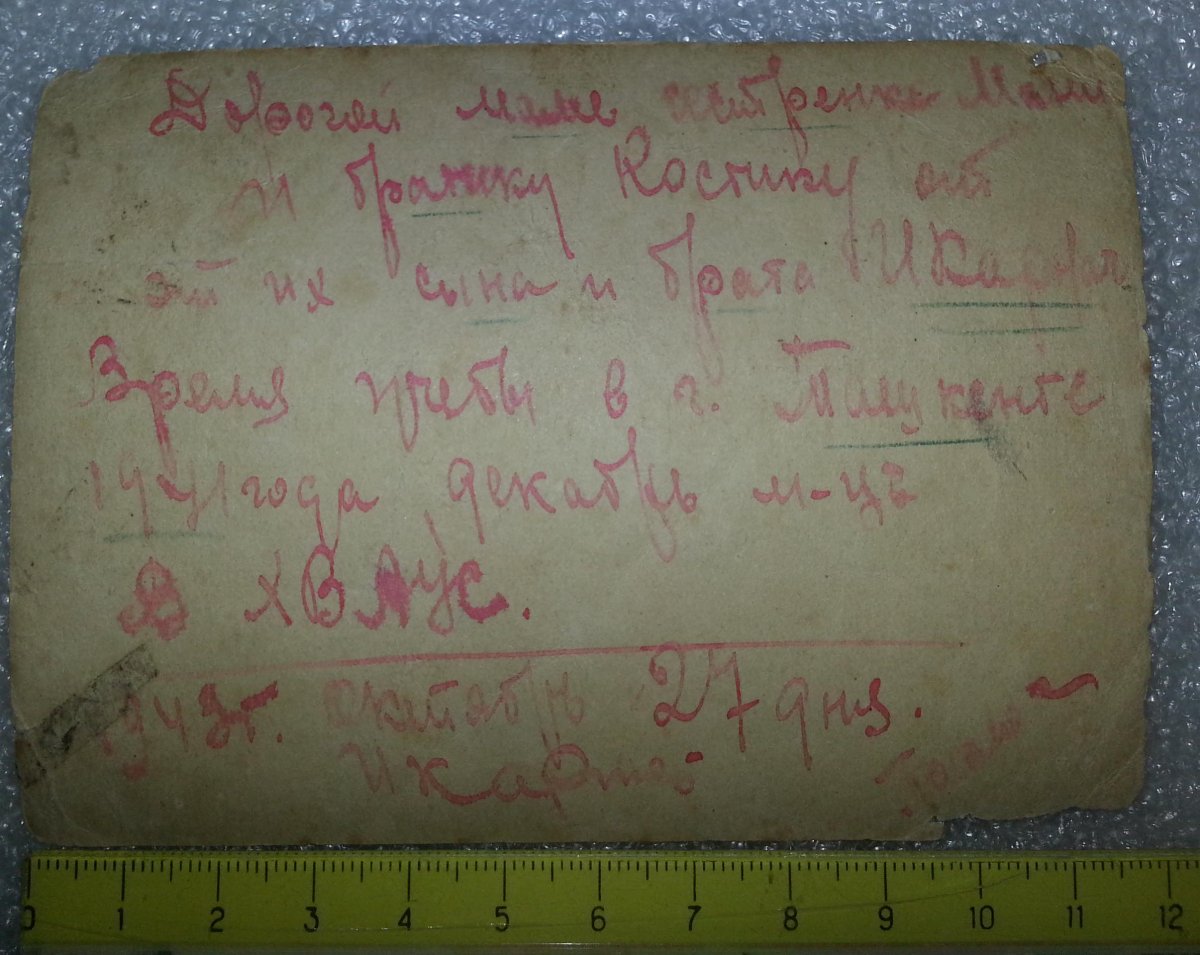 Дорогой маме сестренке Маше
и братику Костику от
от их сына и брата Икара
Время учебы в г. Ташкенте
1941 года, декабрь м-цъ
В ХВАУС.
1943г. октябрь 27 дня.
0 1 2 3 4 5 6 7 8 9 10 11 12